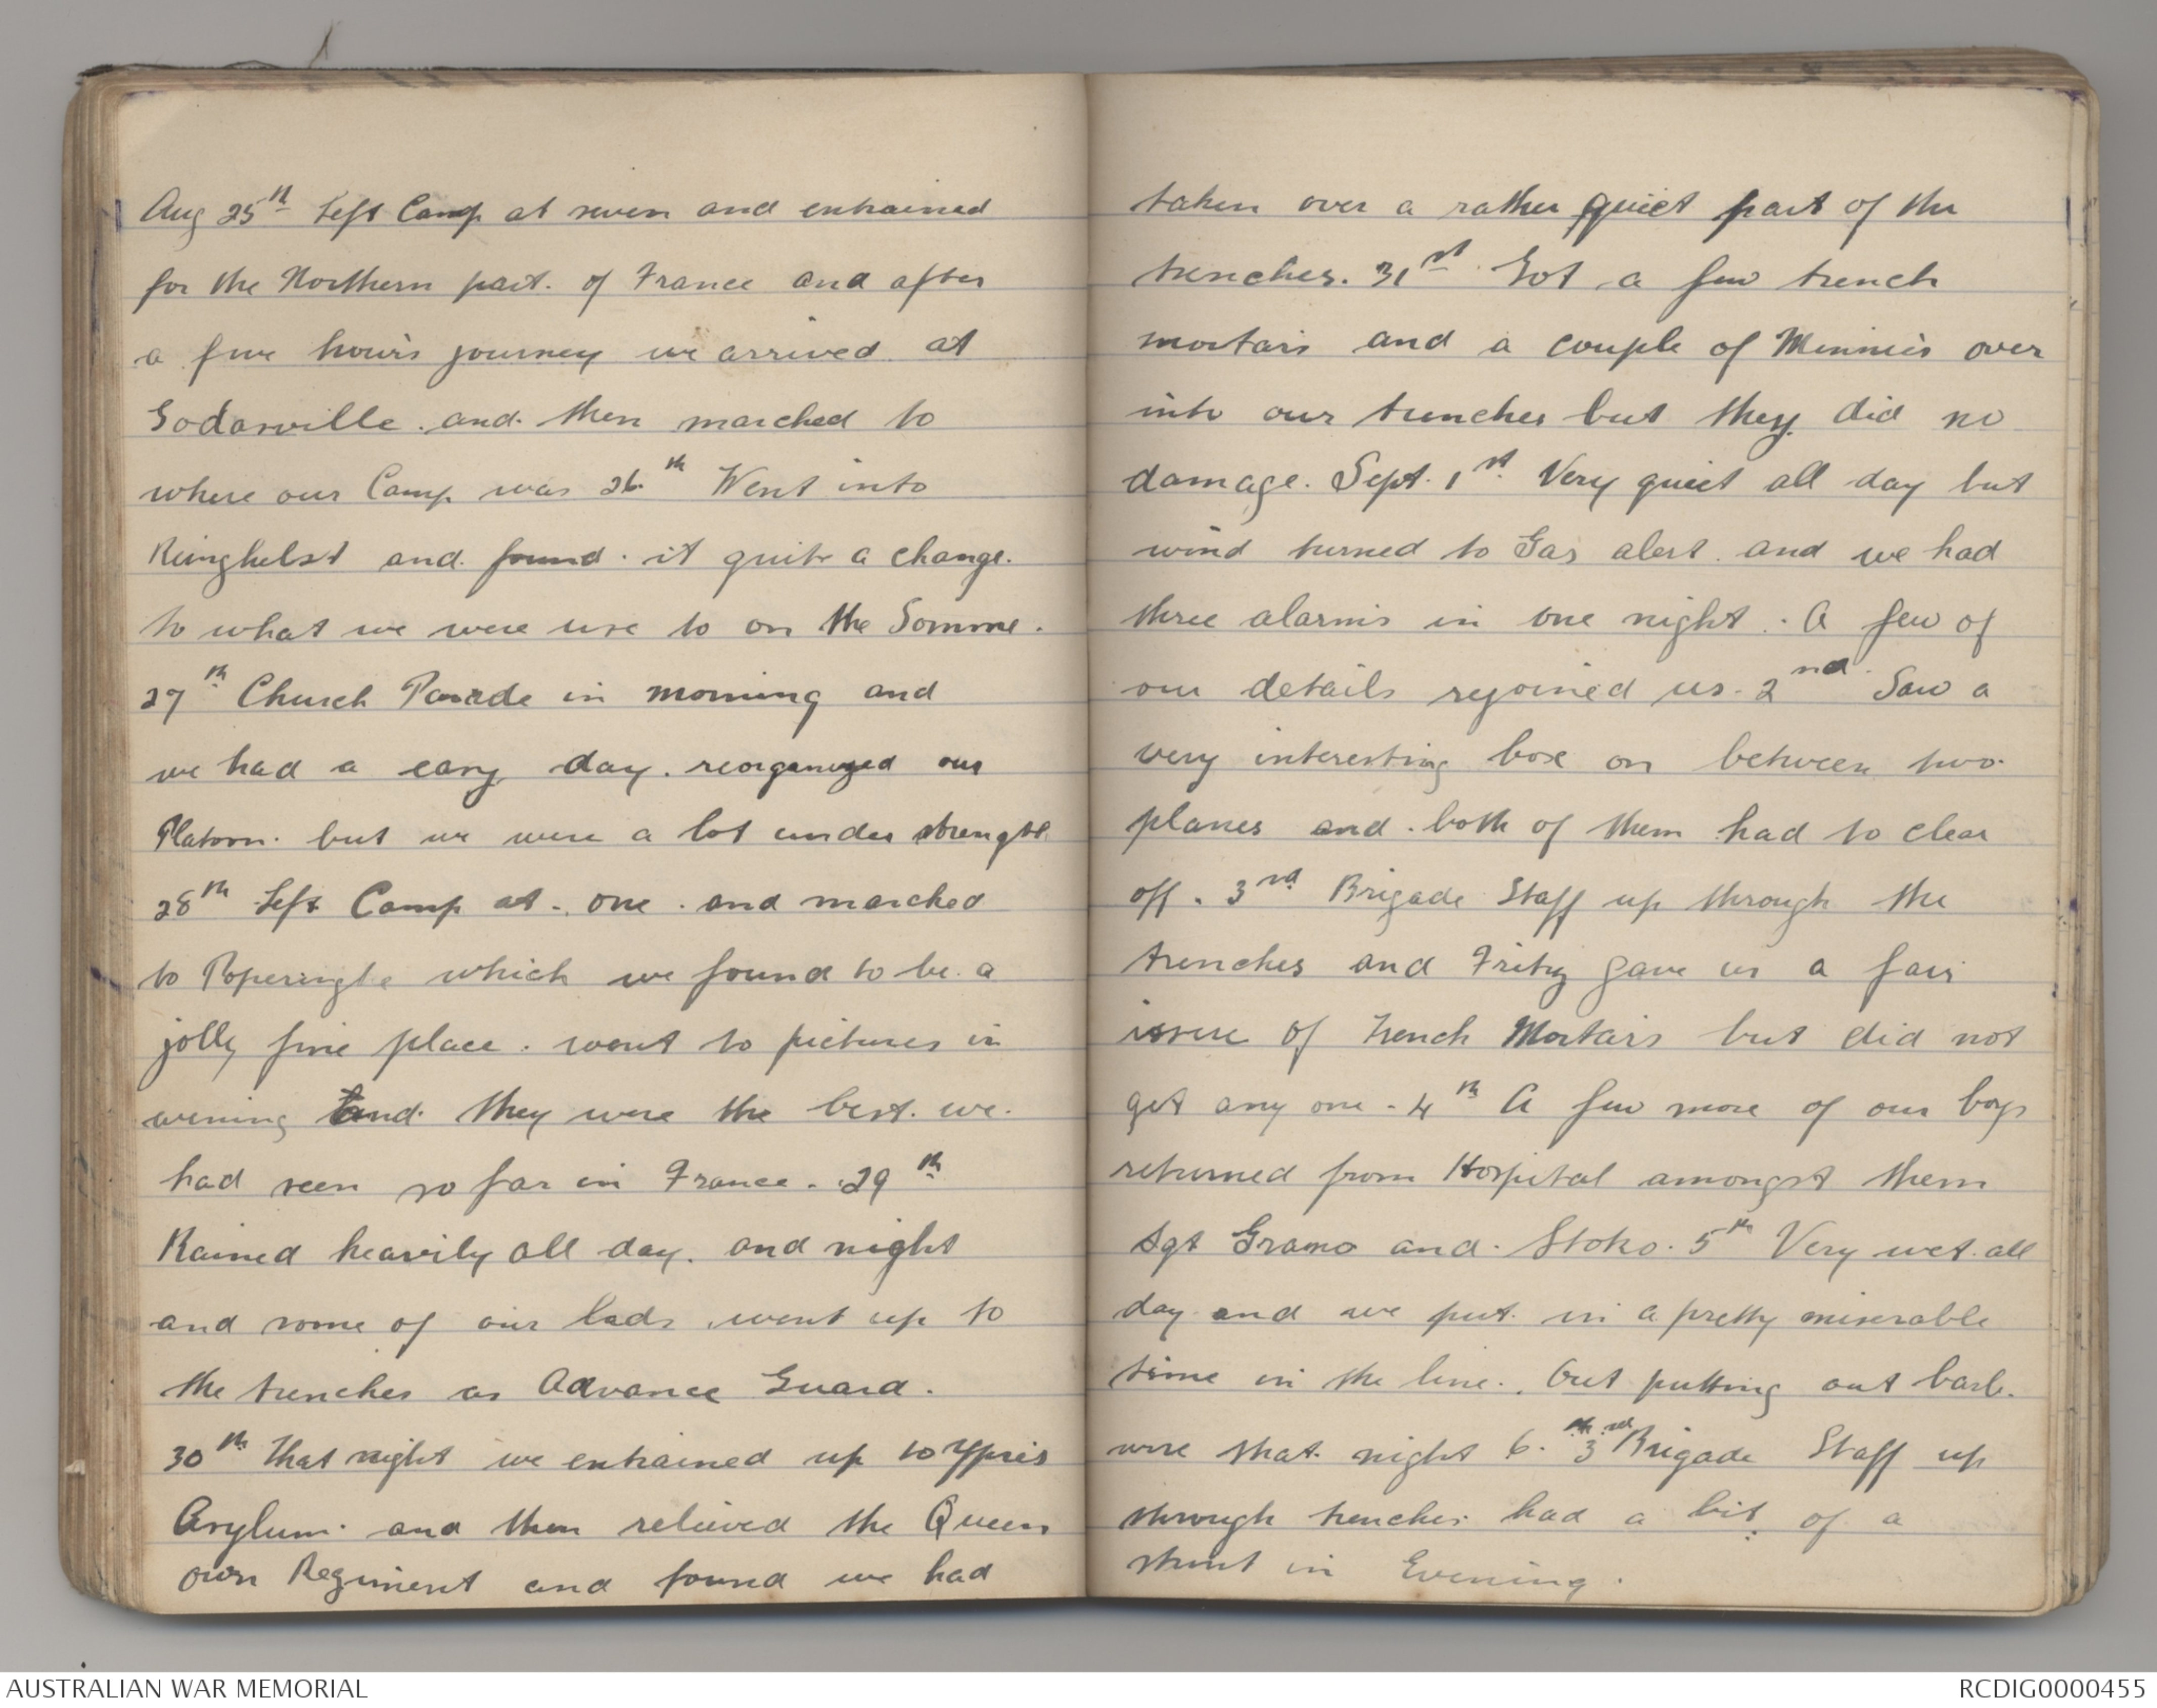 Aug 25th Left Camp at seven and entrained
for the Northern part. of France and after
a five hours journey we arrived at
Godarville. and. then marched to
where our Camp was 26th Went into
Reinghelst and found. it quite a change.
to what we were use to on the Somme.
27th Church Parade in morning and
we had a easy day. reorganized our
Platoon. but we were a lot under strength
28th Left Camp at. one. and marched
to Poperinghe which we found to be a
jolly fine place. went to pictures in
evening and. they were the best. we.
had seen so far in France. 29th
Rained heavily all day. and night
and some of our lads went up to
the trenches as Advance Guard.
30th That night we entrained up to Ypres
Asylum. and then relieved the Queen
own Regiment and found we had
taken over a rather quiet part of the
trenches. 31st Got a few trench
mortars and a couple of Minnies over
into our trenches but they did no
damage. Sept. 1st. Very quiet all day but
wind turned to Gas alert. and we had
three alarms in one night. A few of
our details rejoined us. 2nd. Saw a
very interesting box on between two.
planes and. both of them had to clear
off. 3rd Brigade Staff up through the
trenches and Fritz gave us a fair
issue of Trench Mortars but did not
get any one. 4th A few more of our boys
returned from Hospital amongst them
Sgt and. Stoko. 5th Very wet. all
day and we put. in a pretty miserable
time in the line.. Out putting out barb.
wire that. night 6.th 3rd Brigade Staff up
through trenches had a bit of a
stunt in Evening.
AUSTRALIAN WAR MEMORIAL
RCDIG0000455